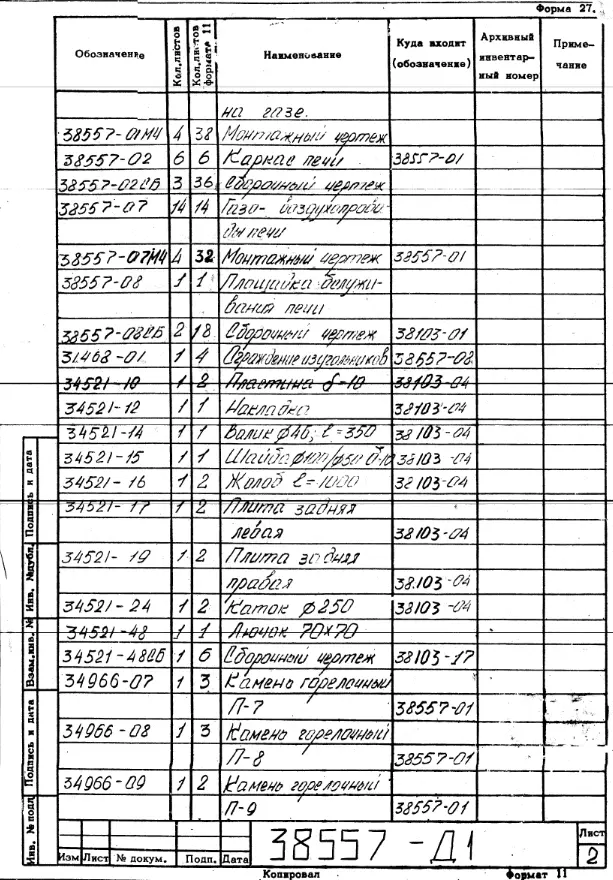 Форма 27.
Обозначение Кол.листов Кол.листов формата 11 Наименование Куда входит (обозначение) Архивный инвентарный номер Примечание
на газе.
38557-01МЧ 4 38 Монтажный чертеж
38557-02 6 6 Каркас печи 38557-01
38557-02СБ 3 36 Сборочный чертеж
38557-07 14 14 Газо- воздухопрово-
ды печи
38557-07МЧ 4 32 Монтажный чертеж 38557-01
38557-08 1 1 Площадка обслужи-
вания печи
38557-08СБ 2 18 Сборочный чертеж 38103-01
31468-01 1 4 Ограждение из угольников 38557-08
34521-10 1 2 Пластина δ=10 38103-04
34521-12 1 1 Накладка 38103-04
34521-14 1 1 Валик φ46; ℓ=350 38103-04
34521-15 1 1 Шайба 38103-04
34521-16 1 2 Жолоб ℓ=1000 38103-04
34521-17 1 2 Плита задняя
левая 38103-04
34521-19 1 2 Плита задняя
правая 38103-04
34521-24 1 2 Каток φ250 38103-04
34521-48 1 1 Лючок 70×70
34521-48СБ 1 6 Сборочный чертеж 38103-17
34966-07 1 3 Камень горелочный
П-7 38557-01
34966-08 1 3 Камень горелочный
П-8 38557-01
34966-09 1 2 Камень горелочный
П-9 38557-01
Подпись и дата
Инв. № дубл.
Взам.инв. №
Подпись и дата
Инв. № подл
Изм Лист № докум. Подп. Дата
38557-Д1
Лист
2
Копировал Формат 11